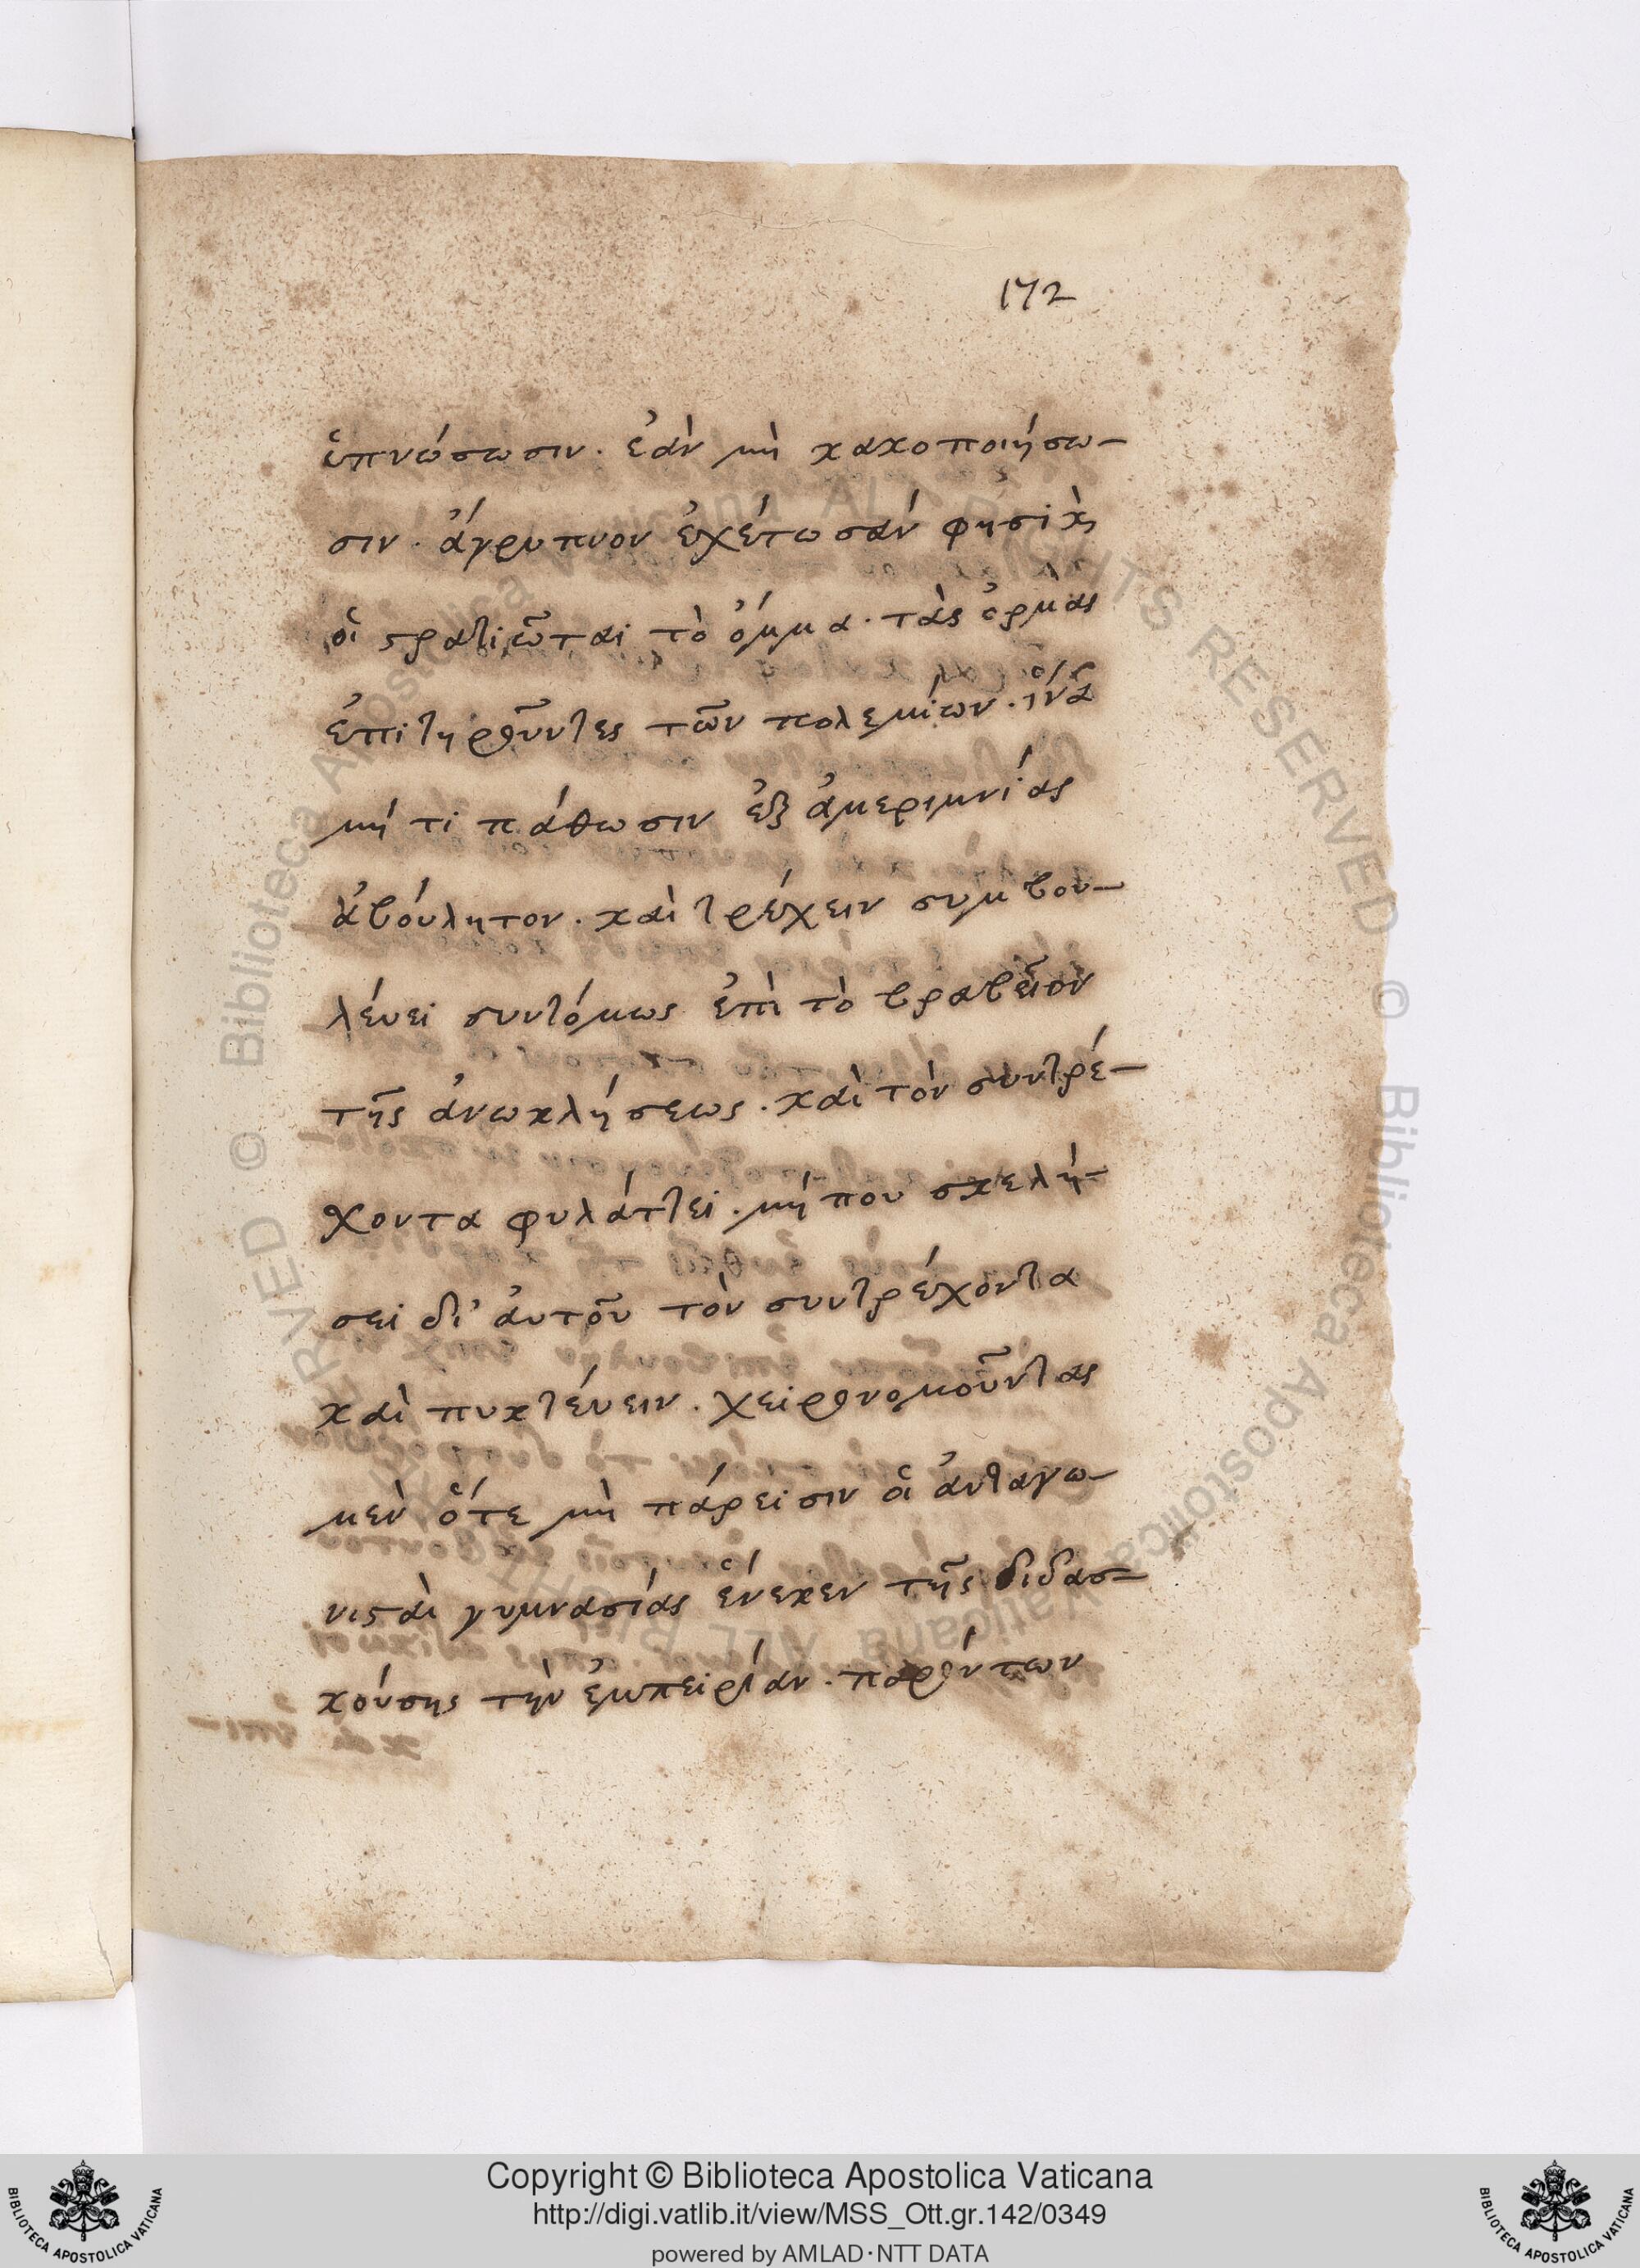 172
ὑπνώσωσιν. ἐὰν μὴ κακοποιήσω-
σιν. ἄγρυπνον ἐχέτωσάν φησὶ κ̀
οἱ στρατιῶται τὸ ὄμμα. τὰς ὁρμὰς
ἐπιτηροῦντες τῶν πολεμίων. ἵνα
μή τι πάθωσιν ἐξ ἀμεριμνίας
ἀβούλητον. καὶ τρέχειν συμβου-
λέυει συντόμως ἐπὶ τὸ βραβεῖον
τῆς ἀνωκλήσεως. καὶ τὸν συντρέ-
χοντα φυλάττει. μή που σκελή-
σει δι' ἀυτοῦ τὸν συντρέχοντα
καὶ πυκτέυειν. χειρονομοῦντας
μὲν ὅτε μὴ πάρεισιν οἱ ἀνταγω-
νισταὶ γυμνασίας ἕνεκεν τῆς διδασ-
κούσης τὴν ἐμπειρίαν. παρόντων
Copyright © Biblioteca Apostolica Vaticana
http://digi.vatlib.it/view/MSS_Ott.gr.142/0349
powered by AMLAD·NTT DATA
BIBLIOTECA APOSTOLICA VATICANA
BIBLIOTECA APOSTOLICA VATICANA
© Biblioteca Apostolica Vaticana ALL RIGHTS RESERVED © Biblioteca Apostolica Vaticana ALL RIGHTS RESERVED